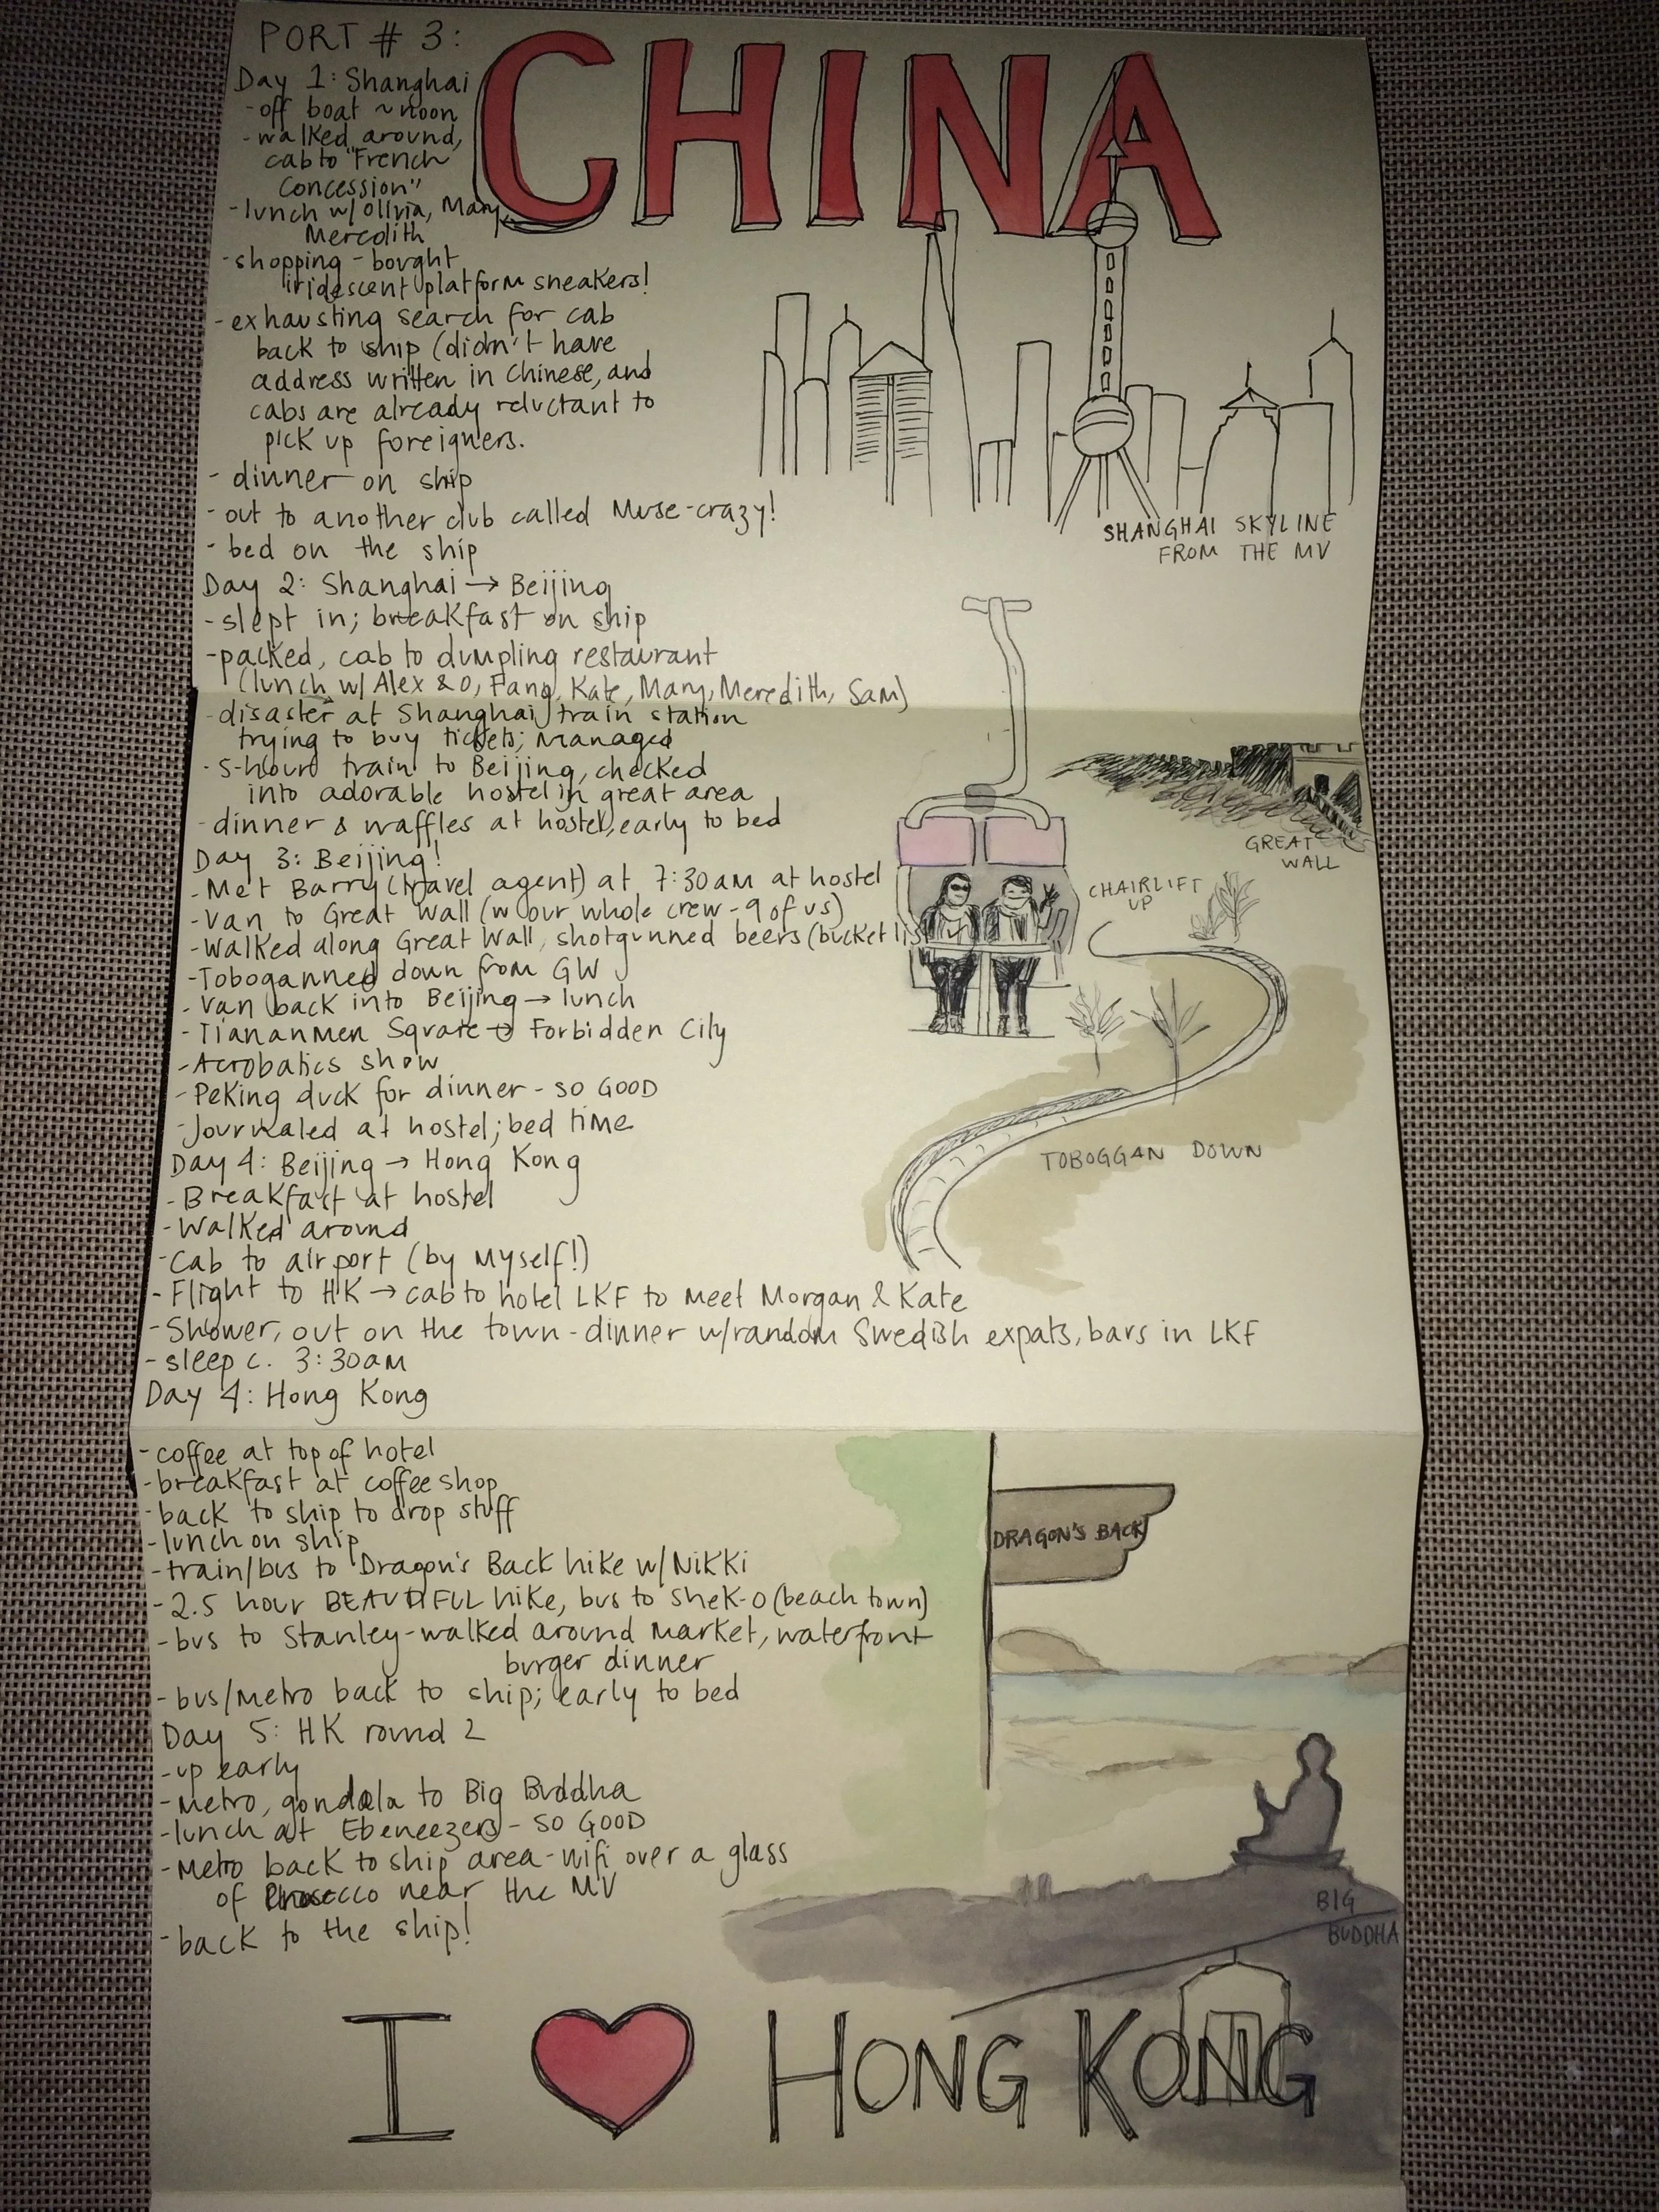 PORT # 3:
CHINA
Day 1: Shanghai
- off boat ~ noon
- walked around,
cab to "French
Concession"
- lunch w/ Olivia, Mary,
Meredith
- shopping - bought
iridescent platform sneakers!
- exhausting search for cab
back to ship (didn't have
address written in Chinese, and
cabs are already reluctant to
pick up foreigners.
- dinner on ship
- out to another club called Muse - crazy!
- bed on the ship
SHANGHAI SKYLINE
FROM THE MV
Day 2: Shanghai → Beijing
- slept in; breakfast on ship
- packed, cab to dumpling restaurant
(lunch w/ Alex & O, Fang, Kate, Mary, Meredith, Sam)
- disaster at Shanghai train station
trying to buy tickets; managed
- 5-hour train to Beijing, checked
into adorable hostel in great area
- dinner & waffles at hostel, early to bed
GREAT
WALL
Day 3: Beijing!
- Met Barry (travel agent) at 7:30am at hostel
- Van to Great Wall (w our whole crew - 9 of us)
- Walked along Great Wall, shotgunned beers (bucket list
CHAIRLIFT
UP
- Toboganned down from GW
- Van back into Beijing → lunch
- Tiananmen Square → Forbidden City
- Acrobatics show
- Peking duck for dinner - SO GOOD
- Journaled at hostel; bed time
TOBOGGAN DOWN
Day 4: Beijing → Hong Kong
- Breakfast at hostel
- Walked around
- Cab to airport (by myself!)
- Flight to HK → cab to hotel LKF to meet Morgan & Kate
- Shower, out on the town - dinner w/ random Swedish expats, bars in LKF
- sleep c. 3:30am
Day 4: Hong Kong
- coffee at top of hotel
- breakfast at coffee shop
- back to ship to drop stuff
- lunch on ship
- train/bus to Dragon's Back hike w/ Nikki
DRAGON'S BACK
- 2.5 hour BEAUTIFUL hike, bus to Shek-O (beach town)
- bus to Stanley - walked around market, waterfront
burger dinner
- bus/metro back to ship; early to bed
Day 5: HK round 2
- up early
- Metro, gondola to Big Buddha
- lunch at Ebeneezers - SO GOOD
- Metro back to ship area - wifi over a glass
of Prosecco near the MV
- back to the ship!
BIG
BUDDHA
I HONG KONG